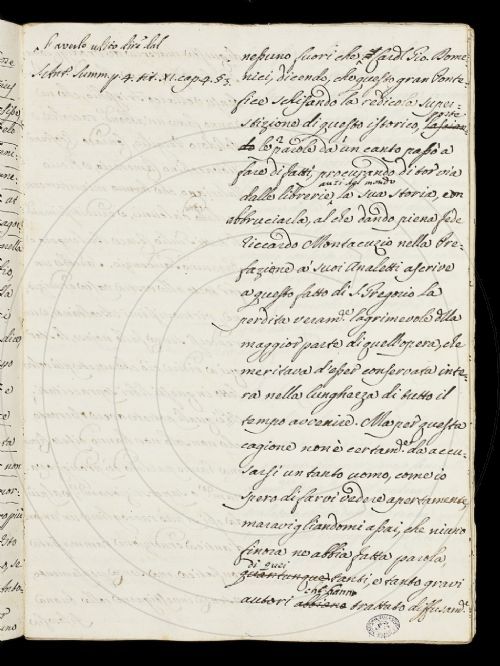 P averlo udito dire dal
S. Ant. Summ. p. 4. tit. XI. cap. 4. §.
nessuno fuori che il Card. Gio. Dome-
nici, dicendo, che questo gran Ponte-
fice schifando la redicola super-
stizione di questo istorico, poste
le parole da un canto passò a
fare di fatti, procurando di tor via
dalle librerie, anzi dal mondo la sua storia, con
abbruciarla, al che dando piena fede
Riccardo Montacuzio nella Pre-
fazione a' suoi Analetti ascrive
a questo fatto di S. Gregorio la
perdita veram.e lagrimevole della
maggior parte di quell'opera, che
meritava d'esser conservata inte-
ra nella lunghezza di tutto il
tempo avvenire. Ma per questa
cagione non è certam.e da accu-
sarsi un tanto uomo, come io
spero di farvi vedere apertamente,
maravigliandomi assai, che niuno
finora ne abbia fatta parola,
di quei
quantunque tanti, e tanto gravi
che hanno
autori abbiano trattato diffusam.e